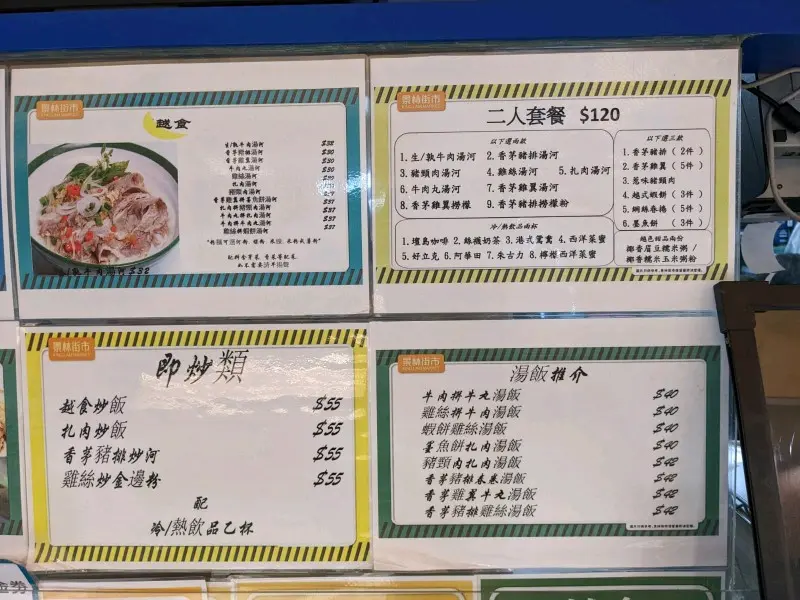 景林街市
越食
生/熟牛肉湯河
香茅豬排湯河
香茅雞翼湯河
牛肉丸湯河
雞絲湯河
扎肉湯河
香茅雞翼拼墨魚餅湯河
雞絲拼蝦餅湯河
$37
生/熟牛肉湯河 $32
景林街市
二人套餐 $120
以下選兩款
1.生/熟牛肉湯河 2.香茅豬排湯河
3.豬頸肉湯河 4.雞絲湯河 5.扎肉湯河
6.牛肉丸湯河 7.香茅雞翼湯河
8.香茅雞翼撈檬 9.香茅豬排撈檬粉
冷/熱飲品兩杯
1.壇島咖啡 2.絲襪奶茶 3.港式鴛鴦 4.西洋菜蜜
5.好立克 6.阿華田 7.朱古力 8.檸檬西洋菜蜜
以下選三款
1.香茅豬排 (2件)
2.香茅雞翼 (5件)
3.惹味豬頸肉
4.越式蝦餅 (3件)
5.網絲春捲 (5件)
6.墨魚餅 (3件)
越色甜品兩份
椰香眉豆糯米粥/
椰香糯米玉米粥粉
景林街市
即炒類
越食炒飯 $55
扎肉炒飯 $55
香茅豬排炒河 $55
雞絲炒金邊粉 $55
配
冷/熱飲品乙杯
景林街市
湯飯推介
牛肉拼牛丸湯飯 $40
雞絲拼牛肉湯飯 $40
蝦餅雞絲湯飯 $40
墨魚餅扎肉湯飯 $40
豬頸肉扎肉湯飯 $42
香茅豬排春卷湯飯 $42
香茅雞翼牛丸湯飯 $42
香茅豬排雞絲湯飯 $42